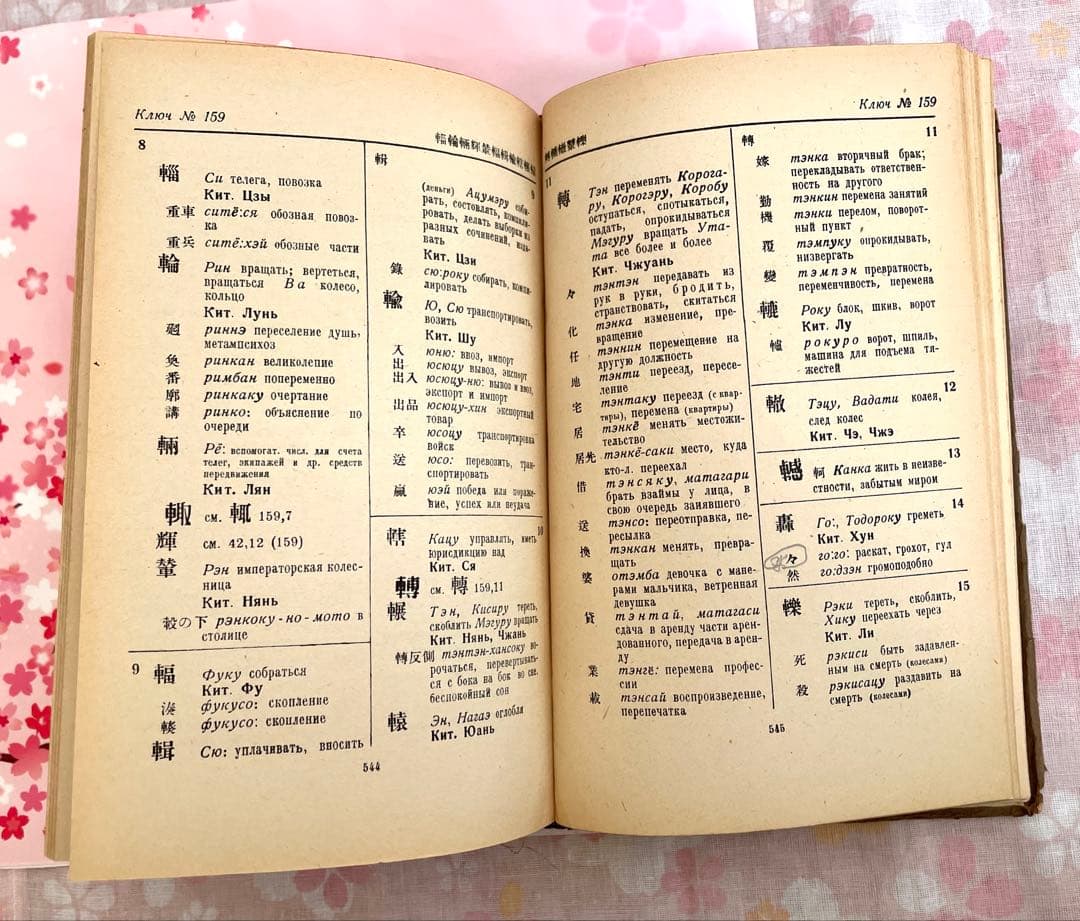 Ключ № 159
8
輜
Си телега, повозка
Кит. Цзы
重車 ситё:ся обозная повоз-
ка
重兵 ситё:хэй обозные части
輪
Рин вращать; вертеться,
вращаться Ва колесо,
кольцо
Кит. Лунь
廻 риннэ переселение душ,
метампсихоз
奐 ринкан великолепие
番 римбан попеременно
廓 ринкаку очертание
講 ринко: объяснение по
очереди
輛
Рё: вспомогат. числ. для счета
телег, экипажей и др. средств
передвижения
Кит. Лян
輙 см. 輒 159,7
輝 см. 42,12 (159)
輦 Рэн императорская колес-
ница
Кит. Нянь
轂の下 рэнкоку-но-мото в
столице
9
輻 Фуку собраться
Кит. Фу
湊 фукусо: скопление
輳 фукусо: скопление
輯 Сю: уплачивать, вносить
輯
9
(деньги) Ацумэру соби-
рать, составлять, компили-
ровать, делать выборки из
разных сочинений, изда-
вать
Кит. Цзи
錄 сю:року собирать, компи-
лировать
輸 Ю, Сю транспортировать,
возить
Кит. Шу
入 юню: ввоз, импорт
出 юсюцу вывоз, экспорт
出入 юсюцу-ню: вывоз и ввоз,
экспорт и импорт
出品 юсюцу-хин экспортный
товар
卒 юсоцу транспортировка
войск
送 юсо: перевозить, тран-
спортировать
贏 юэй победа или пораже-
ние, успех или неудача
10
轄 Кацу управлять, иметь
юрисдикцию над
Кит. Ся
см. 轉 159,11
輾 Тэн, Кисиру тереть,
скоблить Мэгуру вращать
Кит. Нянь, Чжань
轉反側 тэнтэн-хансоку во-
рочаться, перевертывать-
ся с бока на бок во сне,
беспокойный сон
轅 Эн, Нагаэ оглобля
Кит. Юань
544
Ключ № 159
11
轉
Тэн переменять Корога-
ру, Корогэру, Коробу
оступаться, спотыкаться,
падать, опрокидываться
Мэгуру вращать Ута-
та все более и более
Кит. Чжуань
々 тэнтэн передавать из
рук в руки, бродить,
странствовать, скитаться
化 тэнка изменение, пре-
вращение
任 тэннин перемещение на
другую должность
地 тэнти переезд, пересе-
ление
宅 тэнтаку переезд (с квар-
тиры), перемена (квартиры)
居 тэнкё менять местожи-
тельство
居先 тэнкё-саки место, куда
кто-л. переехал
借 тэнсяку, матагари
брать взаймы у лица, в
свою очередь занявшего
送 тэнсо: переотправка, пе-
ресылка
換 тэнкан менять, превра-
щать
婆 отэмба девочка с мане-
рами мальчика, ветренная
девушка
貸 тэнтай, матагаси
сдача в аренду части арен-
дованного, передача в арен-
ду
業 тэнгё: перемена профес-
сии
載 тэнсай воспроизведение,
перепечатка
轉
11
嫁 тэнка вторичный брак;
перекладывать ответствен-
ность на другого
勤 тэнкин перемена занятий
機 тэнки перелом, поворот-
ный пункт
覆 тэмпуку опрокидывать,
низвергать
變 тэмпэн превратность,
переменчивость, перемена
轆 Року блок, шкив, ворот
Кит. Лу
轤 рокуро ворот, шпиль,
машина для подъема тя-
жестей
12
轍 Тэцу, Вадати колея,
след колес
Кит. Чэ, Чжэ
13
轗 軻 Канка жить в неизве-
стности, забытым миром
14
轟 Го:, Тодороку греметь
Кит. Хун
々 го:го: раскат, грохот, гул
然 го:дзэн громоподобно
15
轢 Рэки тереть, скоблить,
Хику переехать через
Кит. Ли
死 рэкиси быть задавлен-
ным на смерть (колесами)
殺 рэкисацу раздавить на
смерть (колесами)
545